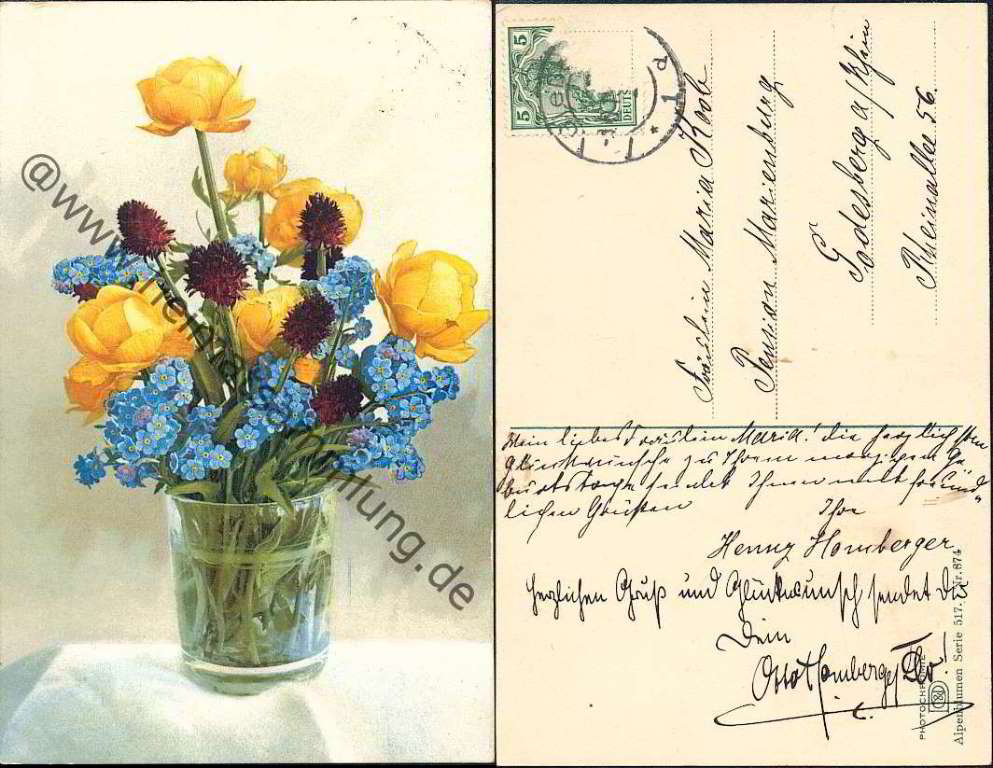 @www.heimatsammlung.de
5
5
DEUTS
1 d
Fräulein Maria Koob
Pension Marienburg
Godesberg a/Rhein
Rheinallee 56.
Mein liebes Fräulein Maria! die herzlichsten
Glückwünsche zu Ihrem morgigen Ge
burtstage sendet Ihnen mit freund-
lichen Grüßen Ihre
Henny Homberger
Herzlichen Gruß und Glückwunsch sendet Dir
Dein
Otto Homberger
PHOTOCHROMIE
Alpenblumen Serie 517. Nr. 874